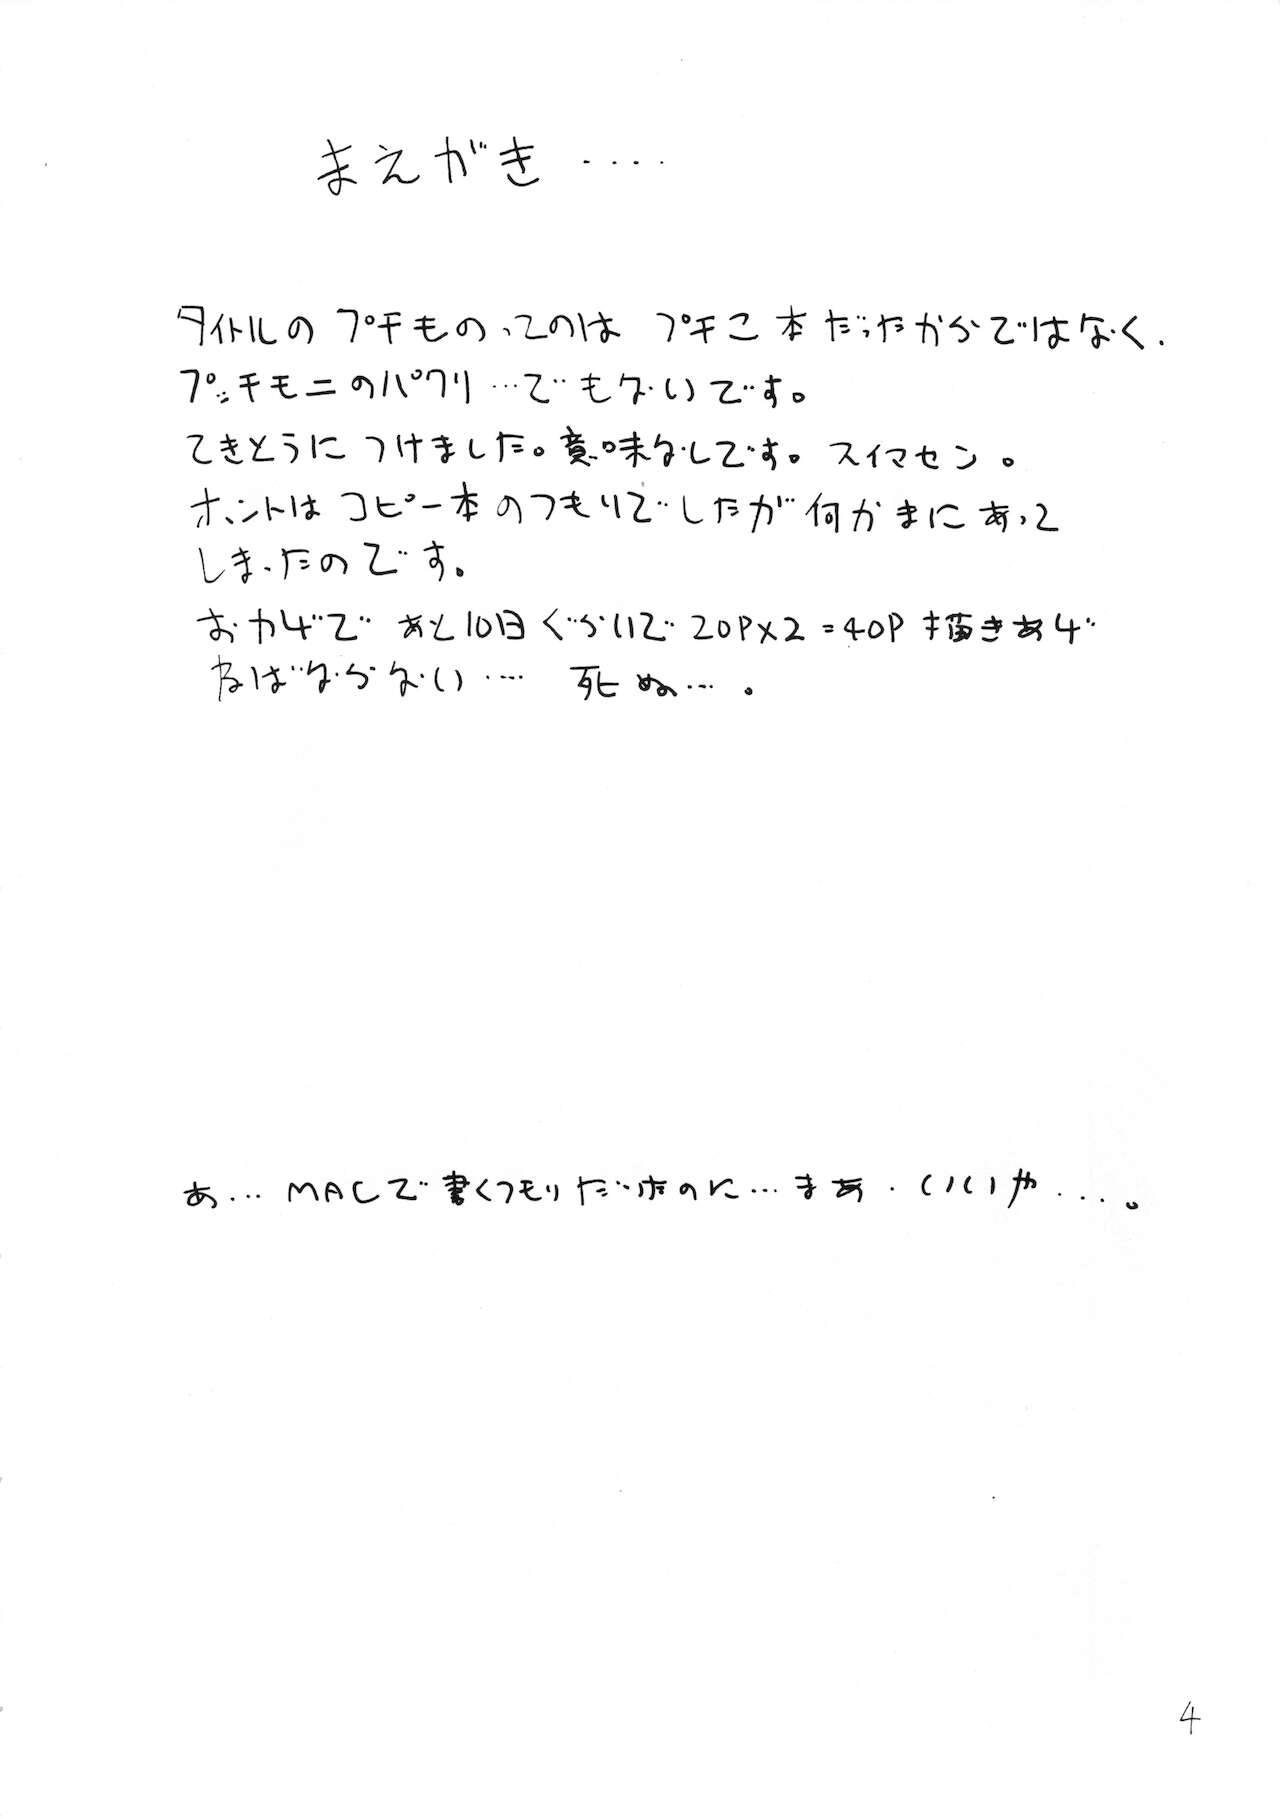 まえがき ‥‥
タイトルの プチものってのは プチこ本だったからではなく、
プッチモニのパクリ…でもないです。
てきとうに つけました。意味なしです。スイマセン。
ホントは コピー本のつもりでしたが何かまにあって
しまったのです。
おかげで あと10日ぐらいで 20P×2=40P 描きあげ
ねばならない‥‥ 死ぬ…。
あ… MACで書くつもりだったのに…まあ、いいや‥‥。
4